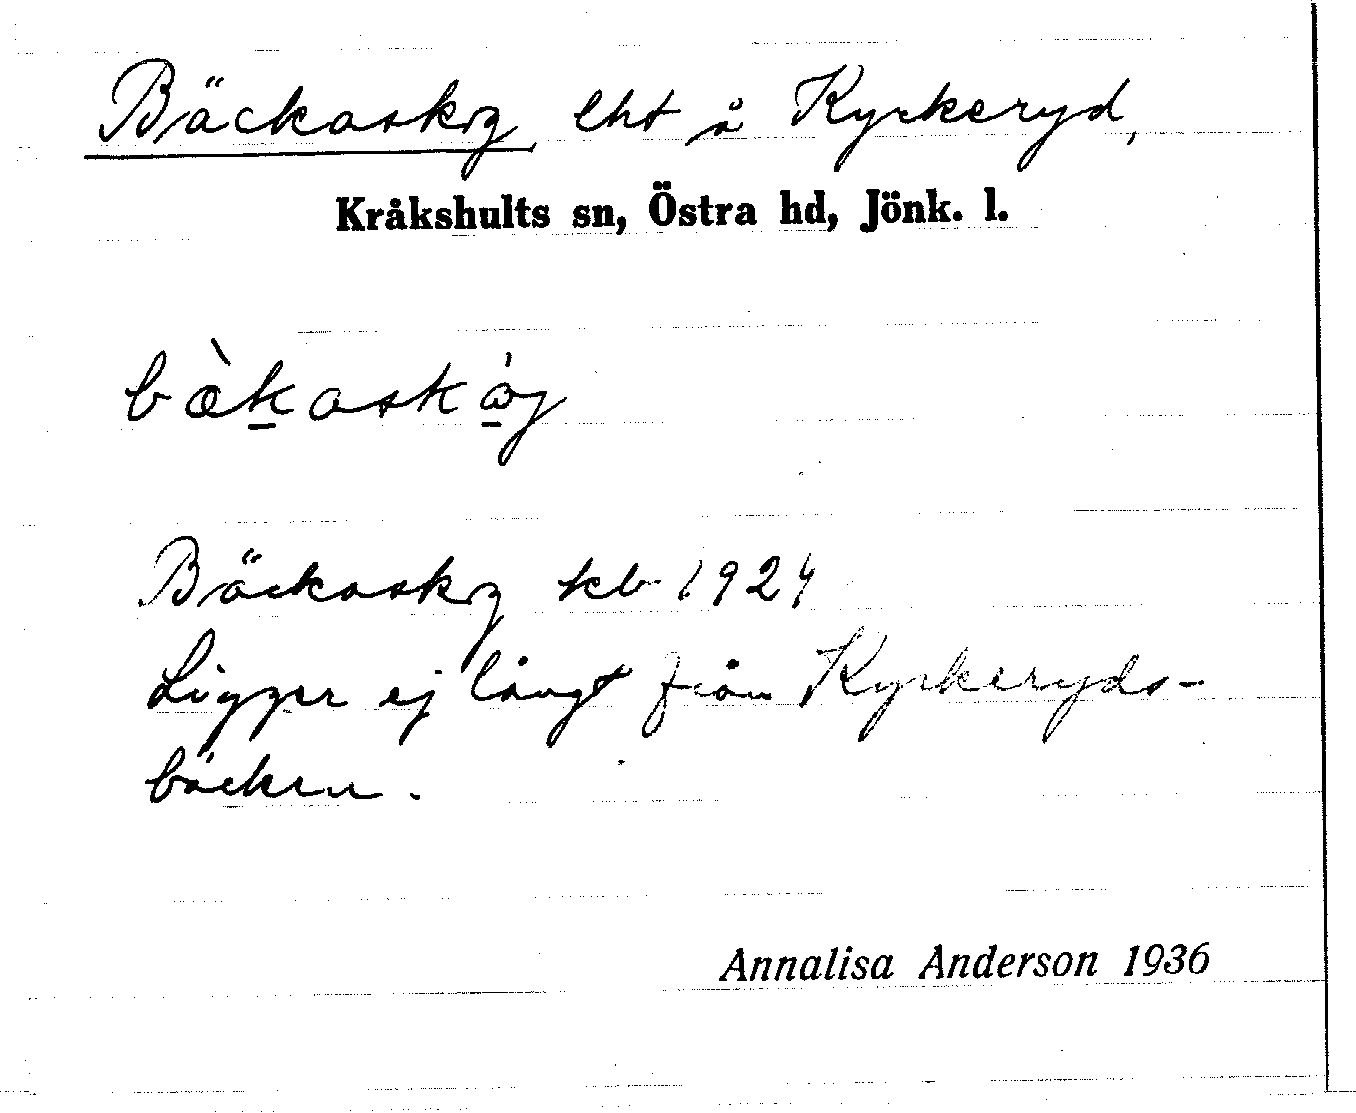 Bäckaskog, lht å Kyrkeryd,
Kråkshults sn, Östra hd, Jönk. l.
bæ̀kaskòg
Bäckaskog kb 1924
Ligger ej långt från Kyrkeryds-
bäcken.
Annalisa Anderson 1936